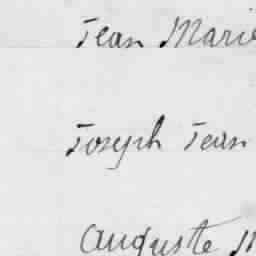 Jean Marie
Joseph Jean
Auguste